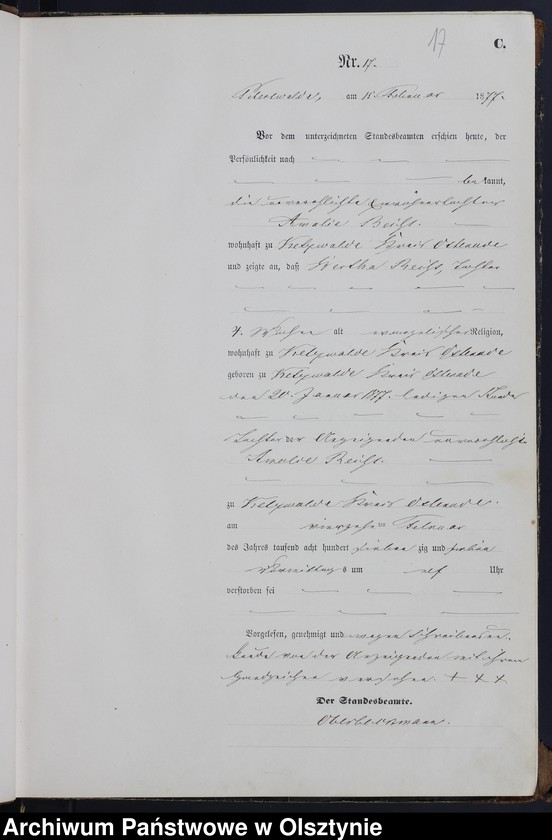 17
C.
Nr. 17.
am 15 Februar 1877.
Vor dem unterzeichneten Standesbeamten erschien heute, der
Persönlichkeit nach
bekannt,
die unverehlichte
Amalie Reihs.
wohnhaft zu Kreis Osterode
und zeigte an, daß Bertha Reihs, Tochter
4. Wochen alt evangelischer Religion,
wohnhaft zu Kreis Osterode
geboren zu Kreis Osterode
den 20. Januar 1877. ledigen Standes
Tochter der Anzeigenden unverehlicht
Amalie Reihs.
zu Kreis Osterode.
am vierzehn Februar
des Jahres tausend acht hundert siebenzig und sieben
Vormittags um elf Uhr
verstorben sei
Vorgelesen, genehmigt und wegen Schreibensun-
kunde von der Anzeigenden mit ihrem
Handzeichen versehen. + + +
Der Standesbeamte.
Archiwum Państwowe w Olsztynie